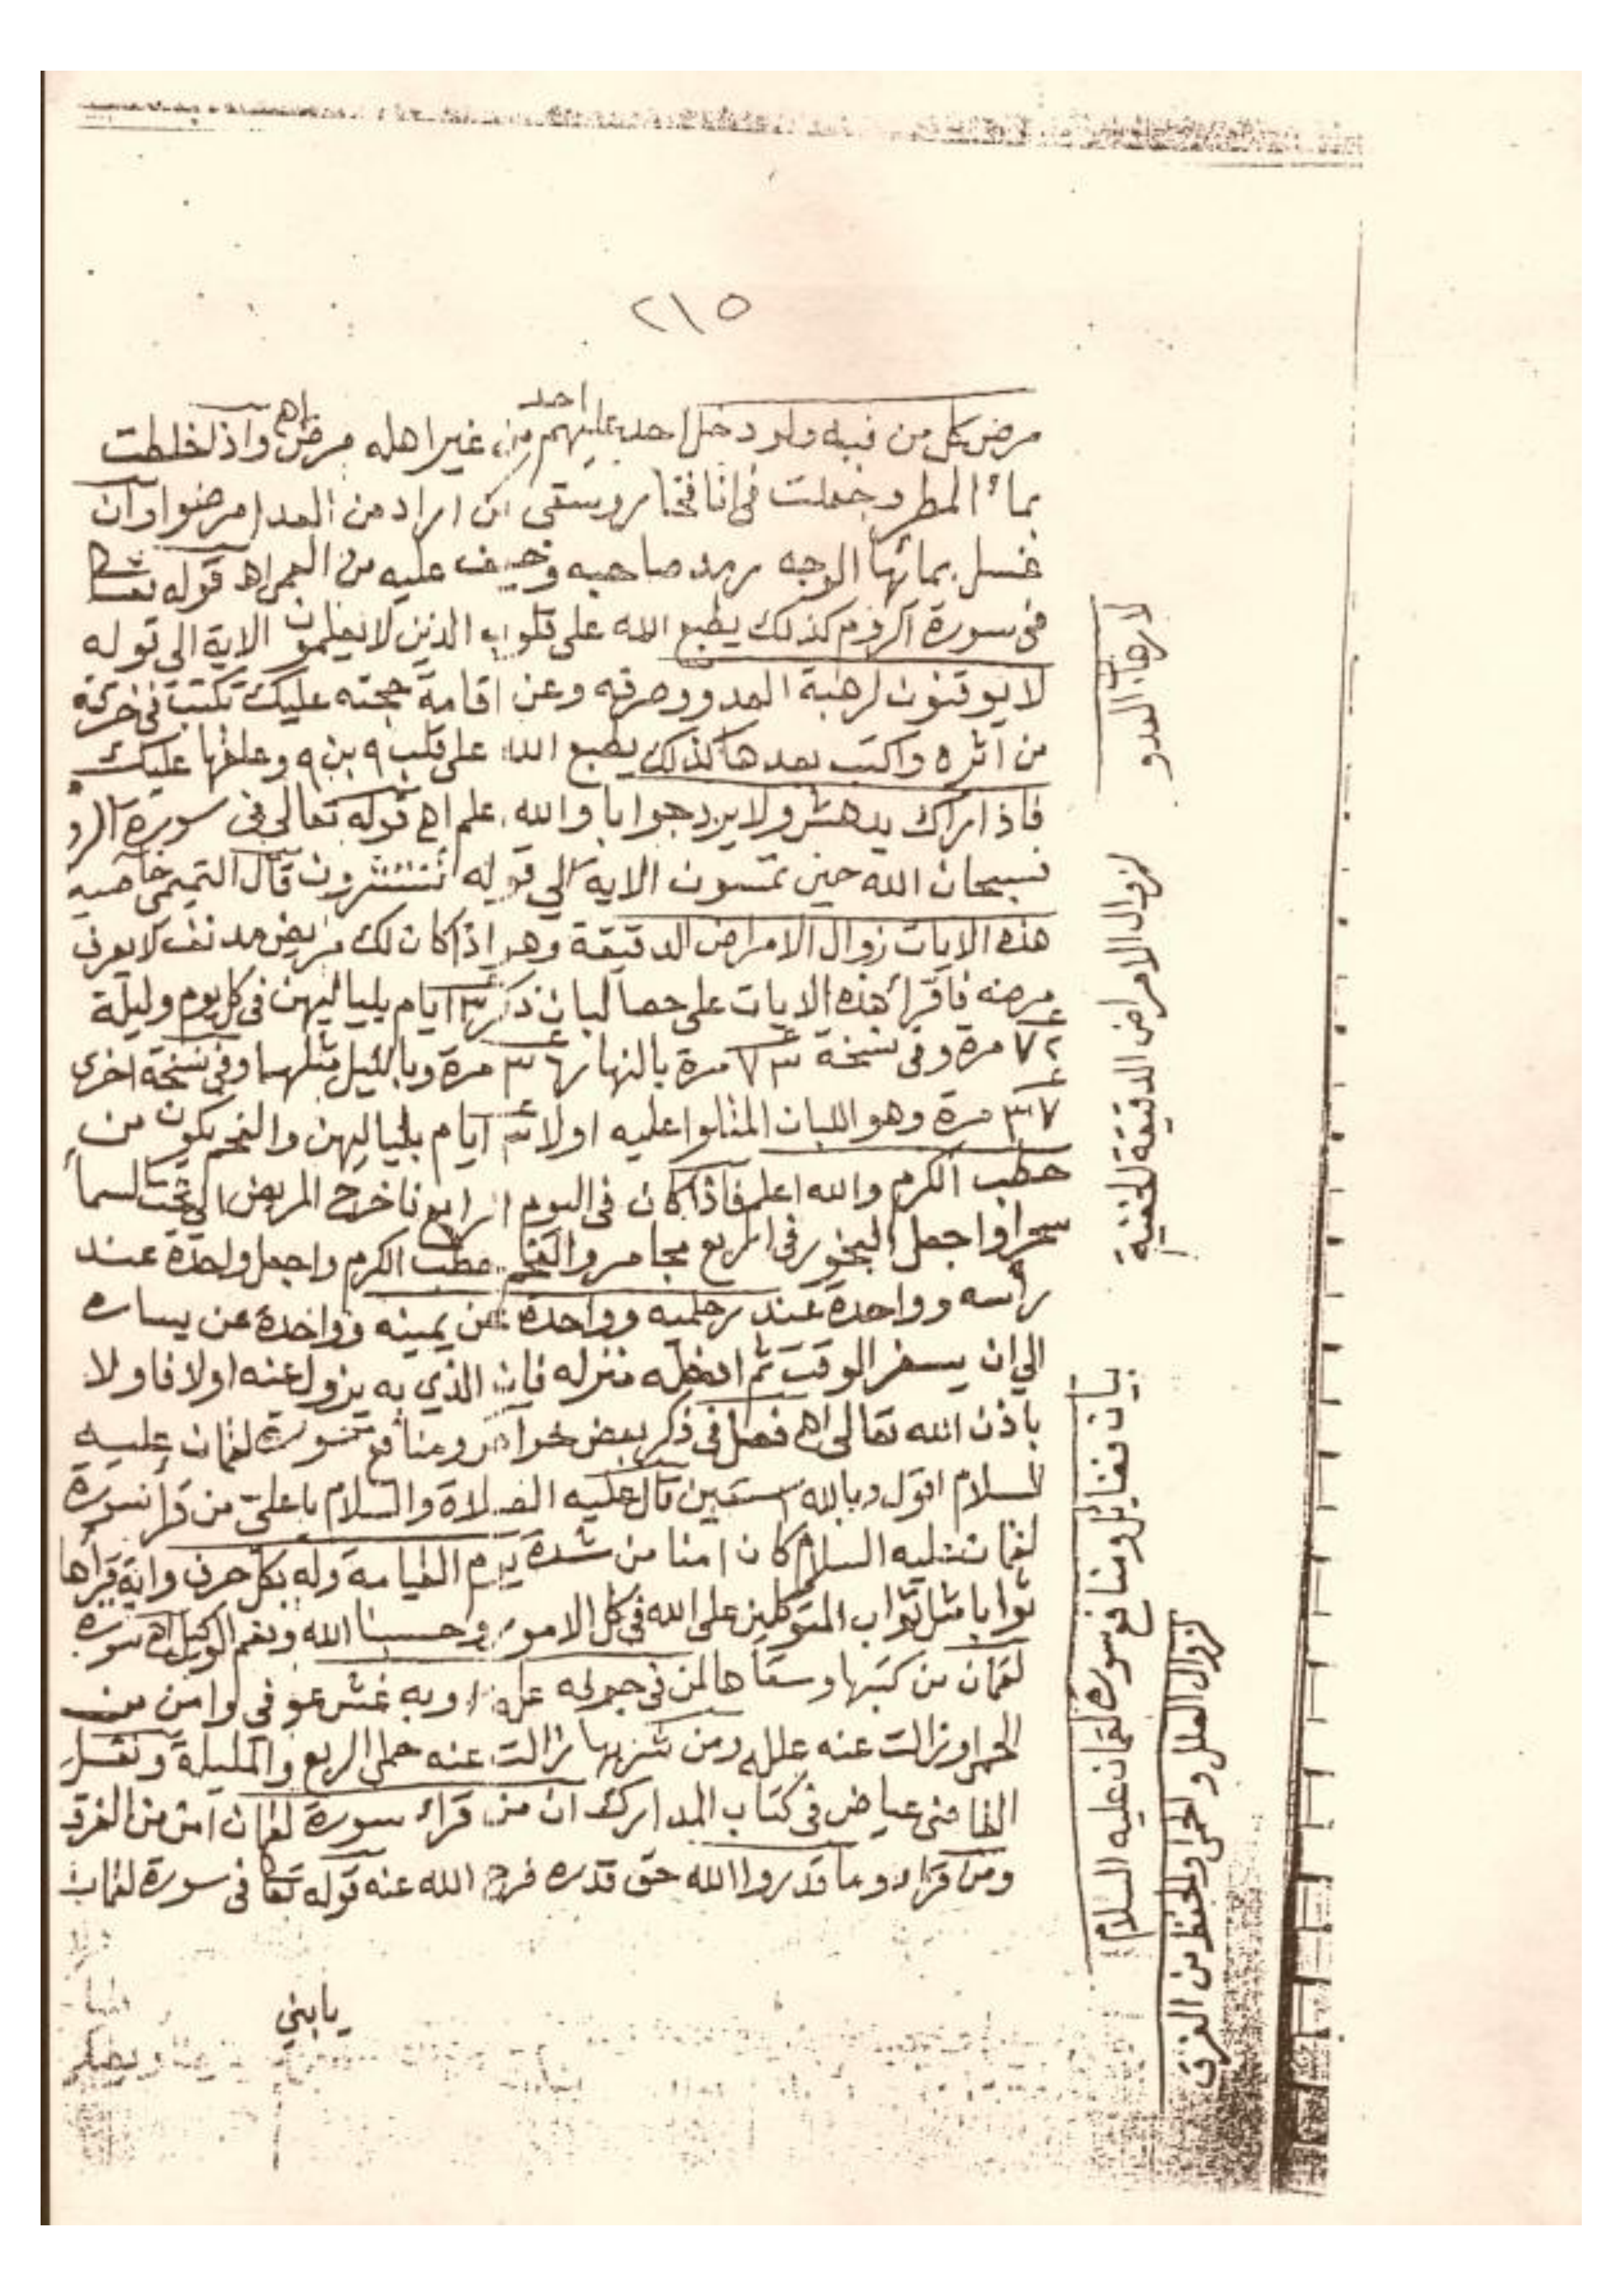 ٢١٥
مرض كل من فيه ولو دخل احد عليهم احد من غير اهله مرض اهـ واذا خلطت
بماء المطر وجعلت فى انا فخار وسقى من اراد من العدا مرضوا وان
غسل بمائها الوجه رمد صاحبه وخيف عليه من العمى اهـ قوله تعالى
فى سورة الروم كذلك يطبع الله على قلوب الذين لا يعلمون الاية الى قوله
لا يوقنون لرهبة العدو وصرفه وعن اقامة حجته عليك تكتب فى خرقة
من اثره واكتب بعدها كذلك يطبع الله على قلب ٩ بن ٩ وعلقها عليك
فاذا راك يدهش ولا يرد جوابا والله اعلم اهـ قوله تعالى فى سورة الرو
فسبحان الله حين تمسون الاية الي قوله تنتشرون قال التميمي خاصيه
هذه الايات زوال الامراض الدقيقة وهو اذا كان لك مريض مدنف لا يعرف
مرضه فاقرأ هذه الايات على حصا لبان ذكر ٣ ايام بلياليهن فى كل يوم وليلة
٧٢ مرة وفى نسخة ٧٣ مرة بالنهار ٣٦ مرة وبالليل مثلهما وفى نسخة اخرى
٣٧ مرة وهو اللبان المتلوا عليه اولا ٣ ايام بلياليهن والفحم يكون من
حطب الكرم والله اعلم فاذا كان فى اليوم الرابع فاخرج المريض الى تحت السما
سحرا واجعل البخور فى اربع مجامر والفحم حطب الكرم واجعل واحدة عند
رأسه وواحدة عند رجليه وواحدة عن يمينه وواحدة عن يساره
الي ان يسفر الوقت ثم ادخله منزله فان الذي به يزول عنه اولا فاولا
باذن الله تعالى اهـ فصل فى ذكر بعض خواص ومنافع سورة لقمان عليه
السلام اقول وبالله استعين قال عليه الصلاة والسلام يا علي من قرأ سورة
لقمان عليه السلام كان امنا من شدة يوم القيامة وله بكل حرف واية قرأها
ثوابا مثل ثواب المتوكلين على الله فى كل الامور وحسبنا الله ونعم الوكيل اهـ سورة
لقمان من كتبها وسقاها لمن فى جوفه علة او به غش عوفى وامن من
الحمى وزالت عنه علله ومن شربها زالت عنه حمى الربع والمليلة ونقل
القاضى عياض فى كتاب المدارك ان من قراء سورة لقمان امن من الغرق
ومن قراء وما قدروا الله حق قدره فرج الله عنه قوله تعا فى سورة لقمان
يا بني
لارهاب العدو
لزوال الامراض الدقيقة الخفية
بيان فضائل ومنافع سورة لقمان عليه السلام
لزوال العلل والحمى والحفظ من الغرق